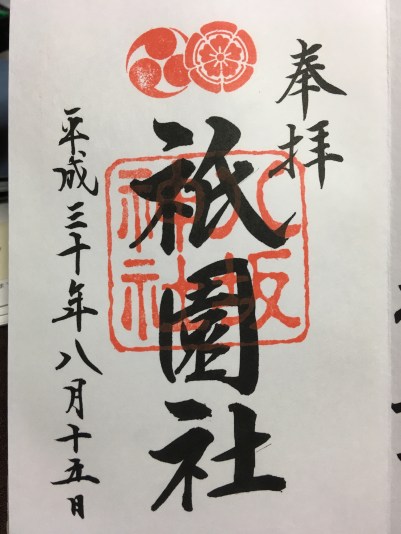 奉拝
八坂神社
祇園社
平成三十年八月十五日